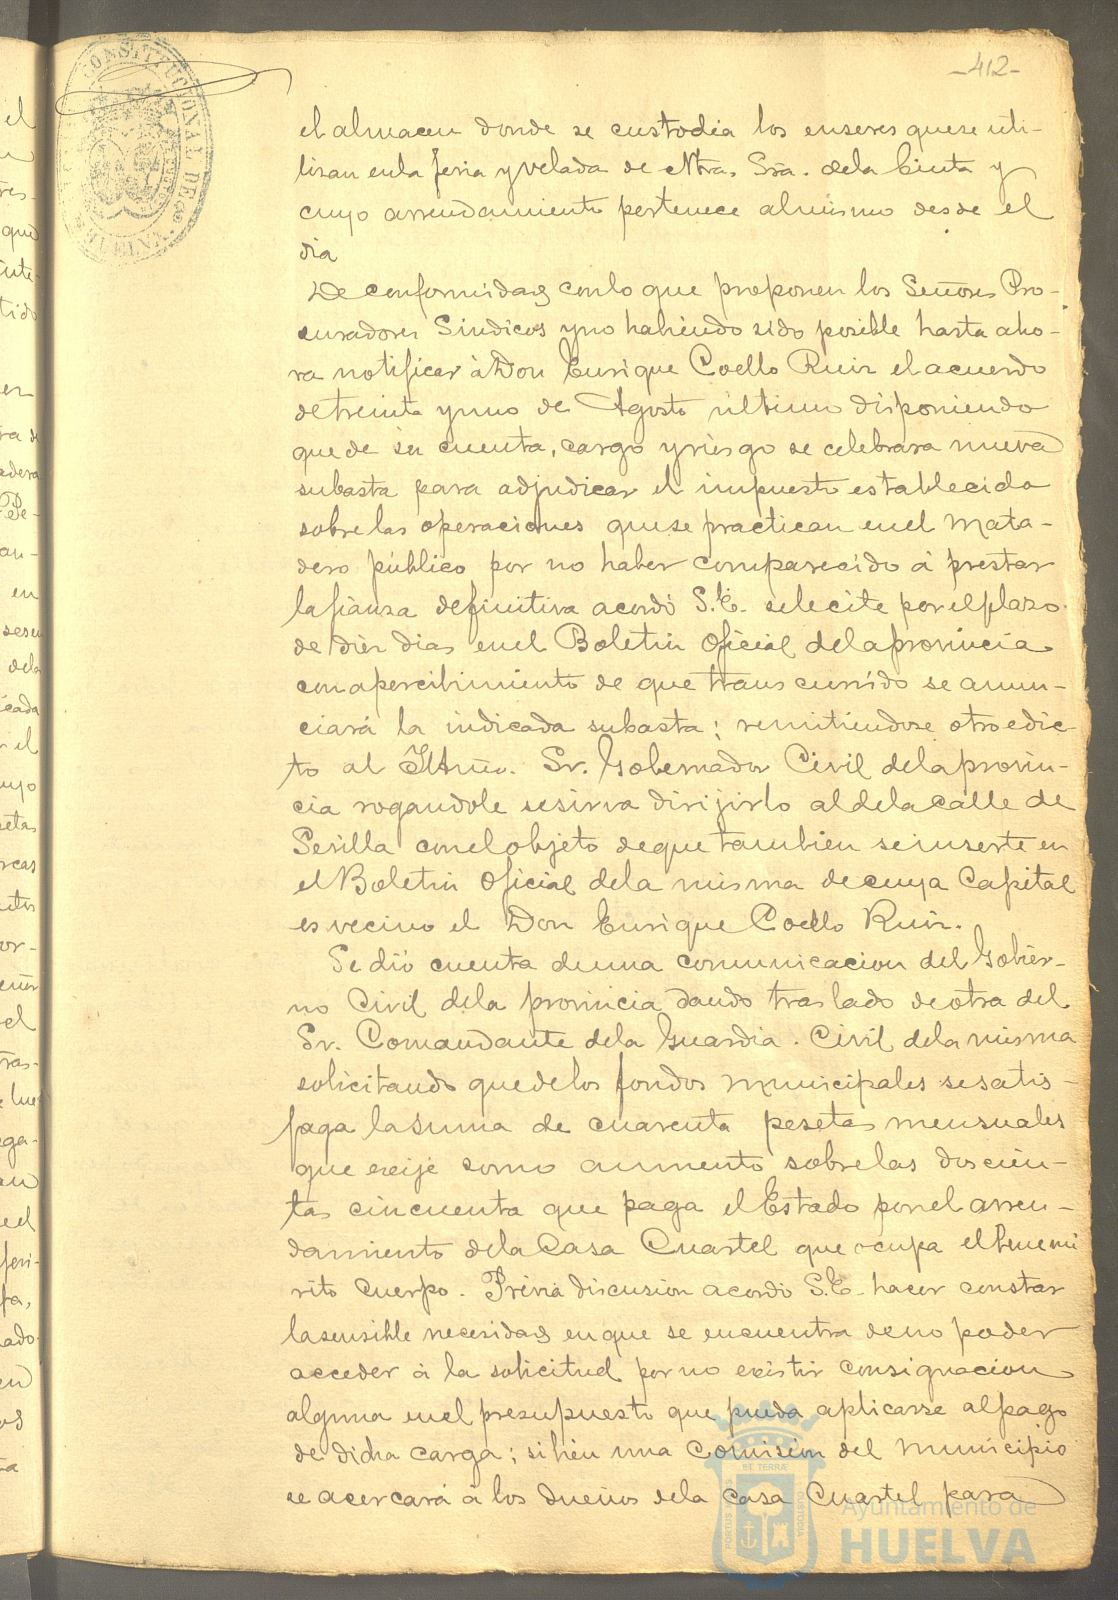 -412-
CONSTITUCIONAL DE
el almacen donde se custodia los enseres que se uti-
lizan en la feria y velada de Ntra. Sra. de la Cinta y
cuyo arrendamiento pertenece al mismo desde el
dia
De conformidad con lo que proponen los Señores Pro-
curadores Sindicos y no habiendo sido posible hasta aho-
ra notificar á Don Enrique Coello Ruiz el acuerdo
de treinta y uno de Agosto último disponiendo
que de su cuenta, cargo y riesgo se celebrara nueva
subasta para adjudicar el impuesto establecido
sobre las operaciones que se practican en el Mata-
dero público por no haber comparecido á prestar
la fianza definitiva acordó S.E. se le cite por el plazo
de diez dias en el Boletin Oficial de la provincia
con apercibimiento de que transcurrido se anun-
ciará la indicada subasta; remitiendose otro edic-
to al Iltmo. Sr. Gobernador Civil de la provin-
cia rogandole se sirva dirijirlo al de la calle de
Sevilla con el objeto de que tambien se inserte en
el Boletin Oficial de la misma de cuya Capital
es vecino el Don Enrique Coello Ruiz.
Se dió cuenta de una comunicacion del Gobier-
no Civil de la provincia dando traslado de otra del
Sr. Comandante de la Guardia Civil de la misma
solicitando que de los fondos municipales se satis-
faga la suma de cuarenta pesetas mensuales
que exije como aumento sobre las doscien-
tas cincuenta que paga el Estado por el arren-
damiento de la Casa Cuartel que ocupa el Benemé
rito Cuerpo. Prévia discusion acordó S.E. hacer constar
la sensible necesidad en que se encuentra de no poder
acceder á la solicitud por no existir consignacion
alguna en el presupuesto que pueda aplicarse al pago
de dicha carga; si bien una Comisión del Municipio
se acercará á los dueños de la Casa Cuartel para
Ayuntamiento de
HUELVA